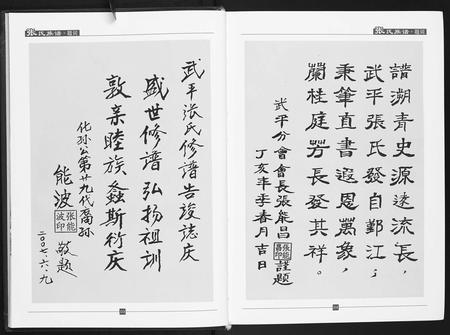 张氏族谱·题词
譜溯青史源遠流長，
武平張氏發自鄞江；
秉筆直書遐恩萬象，
蘭桂庭芳長發其祥。
武平分會會長張能昌謹題
張能昌印
丁亥年季春月吉日
张氏族谱·题词
武平张氏修譜告竣誌庆
盛世修譜弘扬祖訓
敦亲睦族螽斯衍庆
化孙公第廿九代裔孙
能波敬题
張能波印
二〇〇七.六.九